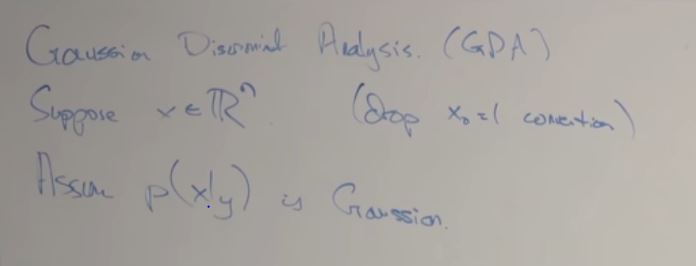 Gaussian Discriminant Analysis. (GDA)
Suppose x ∈ ℝⁿ (drop x₀ = 1 convention)
Assume p(x|y) is Gaussian.